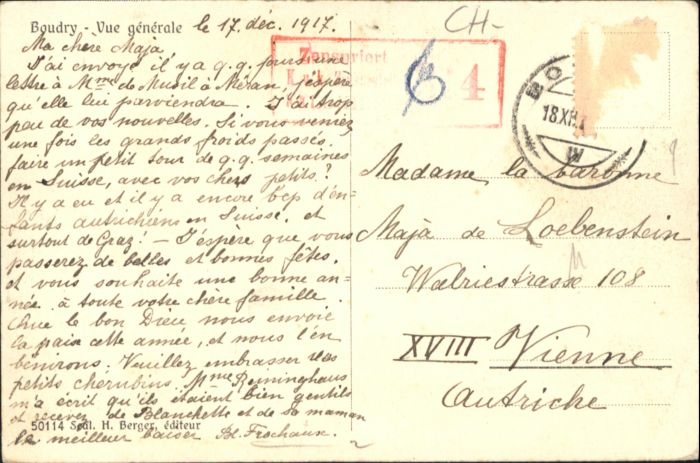 Boudry - Vue générale
le 17. déc. 1917.
Ma chère Maja,
J'ai envoyé il y a q.q. jours une
lettre à Mme de Musil à Méran, j'espère
qu'elle lui parviendra. J'ai trop
peu de vos nouvelles. Si vous veniez
une fois les grands froids passés.
faire un petit tour de q.q. semaines
en Suisse, avec vos chers petits?
Il y a eu et il y a encore bcp d'en-
fants autrichiens en Suisse, et
surtout de Graz! - J'espère que vous
passerez de belles et bonnes fêtes,
et vous souhaite une bonne an-
née à toute votre chère famille.
Que le bon Dieu nous envoie
la paix cette année, et nous l'en
bénirons. Veuillez embrasser vos
petits cherubins. Mme Reininghaus
m'a écrit qu'ils étaient bien gentils
et recevez de Blanchette et de sa maman
le meilleur baiser Bl. Frochaux.
50114 Sgdl. H. Berger, éditeur
CH-
Zensuriert
6
4
BO
18.XII.1
Madame la baronne
Maja de Loebenstein
Walriestrasse 108
XVIII Vienne
Autriche